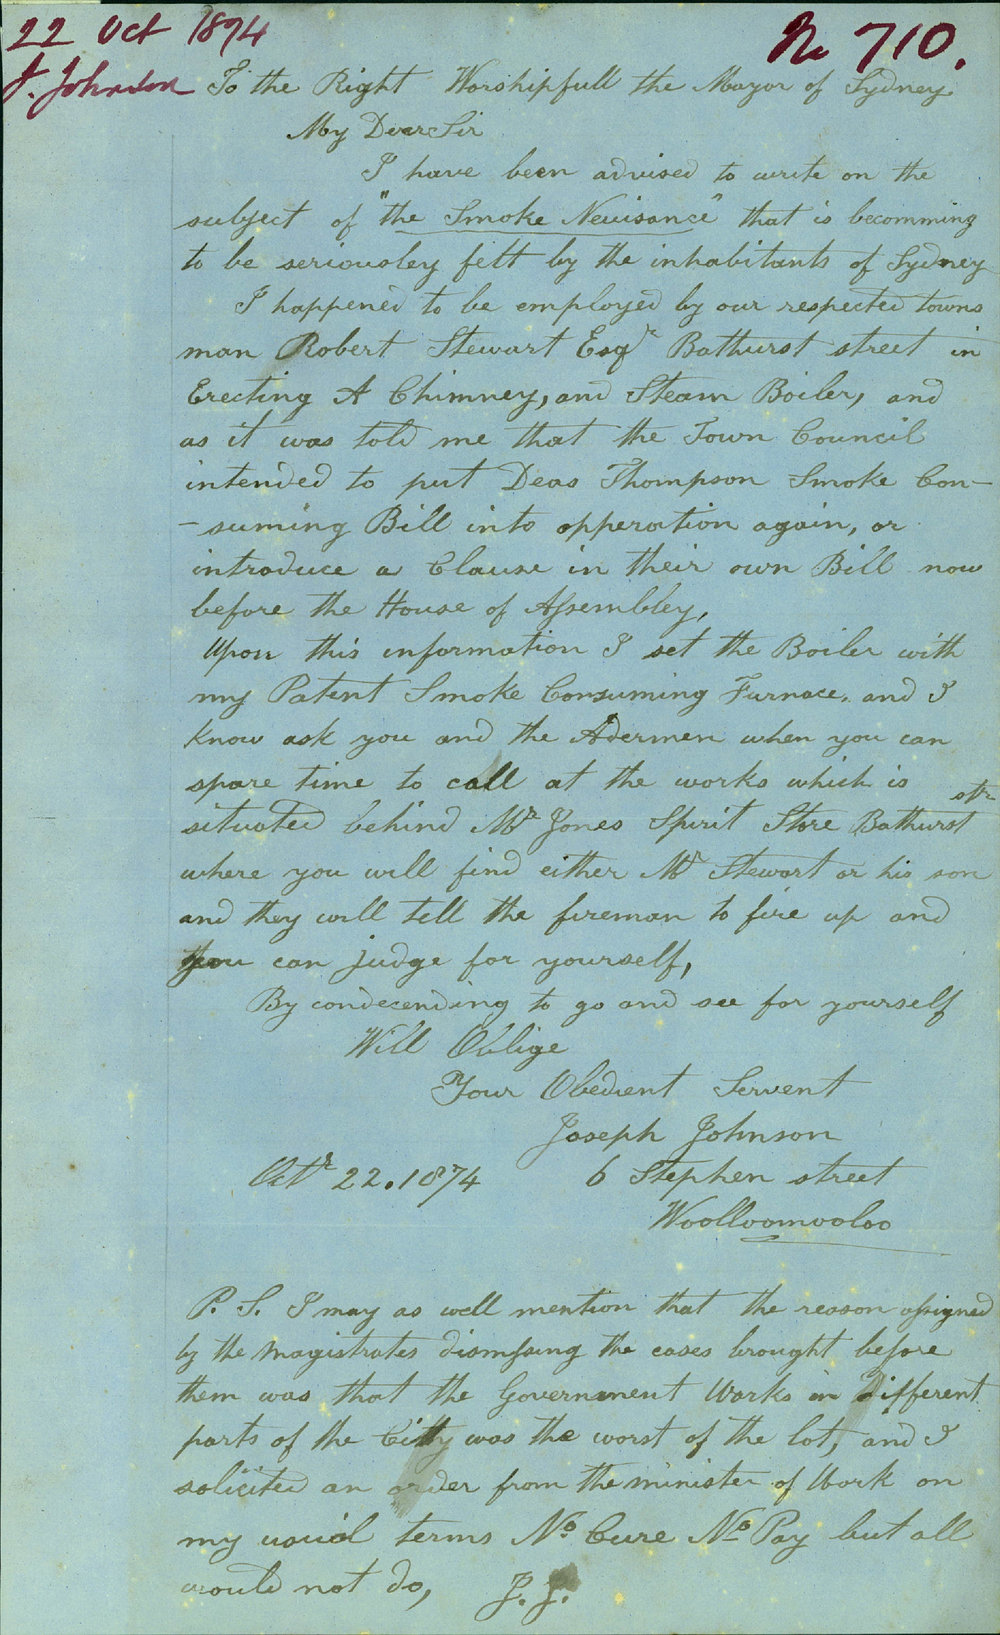 22 Oct 1874
No 710.
J. Johnson
To the Right Worshipfull the Mayor of Sydney
My Dear Sir
I have been advised to write on the
subject of "the Smoke Newisance" that is becomming
to be seriousley felt by the inhabitants of Sydney
I happened to be employed by our respected towns
man Robert Stewart Esqr Bathurst street in
Erecting A Chimney, and Steam Boiler, and
as it was told me that the Town Council
intended to put Deas Thompson Smoke Con-
-suming Bill into opperation again, or
introduce a Clause in their own Bill now
before the House of Assembley,
Upon this information I set the Boiler with
my Patent Smoke Consuming Furnace. and I
know ask you and the Adermen when you can
spare time to call at the works which is
situated behind Mr Jones Spirit Store Bathurst str
where you will find either Mr Stewart or his son
and they will tell the fireman to fire up and
you can judge for yourself,
By condecending to go and see for yourself
Will Oblige
Your Obedient Servent
Joseph Johnson
Octr 22. 1874 6 Stephen street
Woolloomooloo
P. S. I may as well mention that the reason assigned
by the Magistrates dismssing the cases brought before
them was that the Government Works in different
parts of the Citty was the worst of the lot, and I
solicited an order from the minister of Work on
my usual terms No Cure No Pay but all
would not do, J. J.